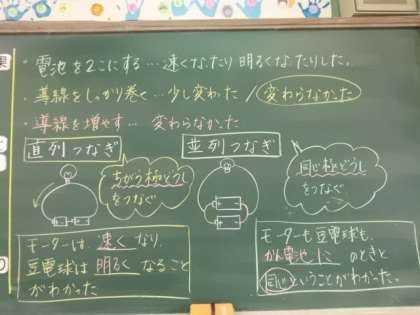 果
・電池を2こにする…速くなったり明るくなったりした。
・導線をしっかり巻く…少し変わった/変わらなかった
・導線を増やす…変わらなかった
直列つなぎ
ちがう極どうし
をつなぐ
並列つなぎ
同じ極どうし
をつなぐ
モーターは、速くなり、
豆電球は明るくなること
がわかった。
モーターも豆電球も、
かん電池1このときと
同じということがわかった。